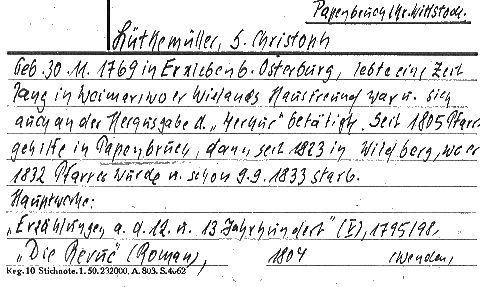 Papenbruch Kr. Wittstock.
Lüttkemüller, S. Christoph
Geb. 30. 11. 1769 in Erxleben b. Osterburg, lebte eine Zeit
lang in Weimar, wo er Wielands Hausfreund war u. sich
auch an der Herausgabe d. „Merkur“ betätigte. Seit 1805 Pfarr
gehilfe in Papenbruch, dann seit 1823 in Wildberg, wo er
1832 Pfarrer wurde u. schon 9.9. 1833 starb.
Hauptwerke:
„Erzählungen a. d. 12. u. 13 Jahrhundert“ 1795/98,
„Die Revue“ (Roman), 1804
Krg. 10 Stichnote. 1. 50. 232000. A. 803. S. 4.62